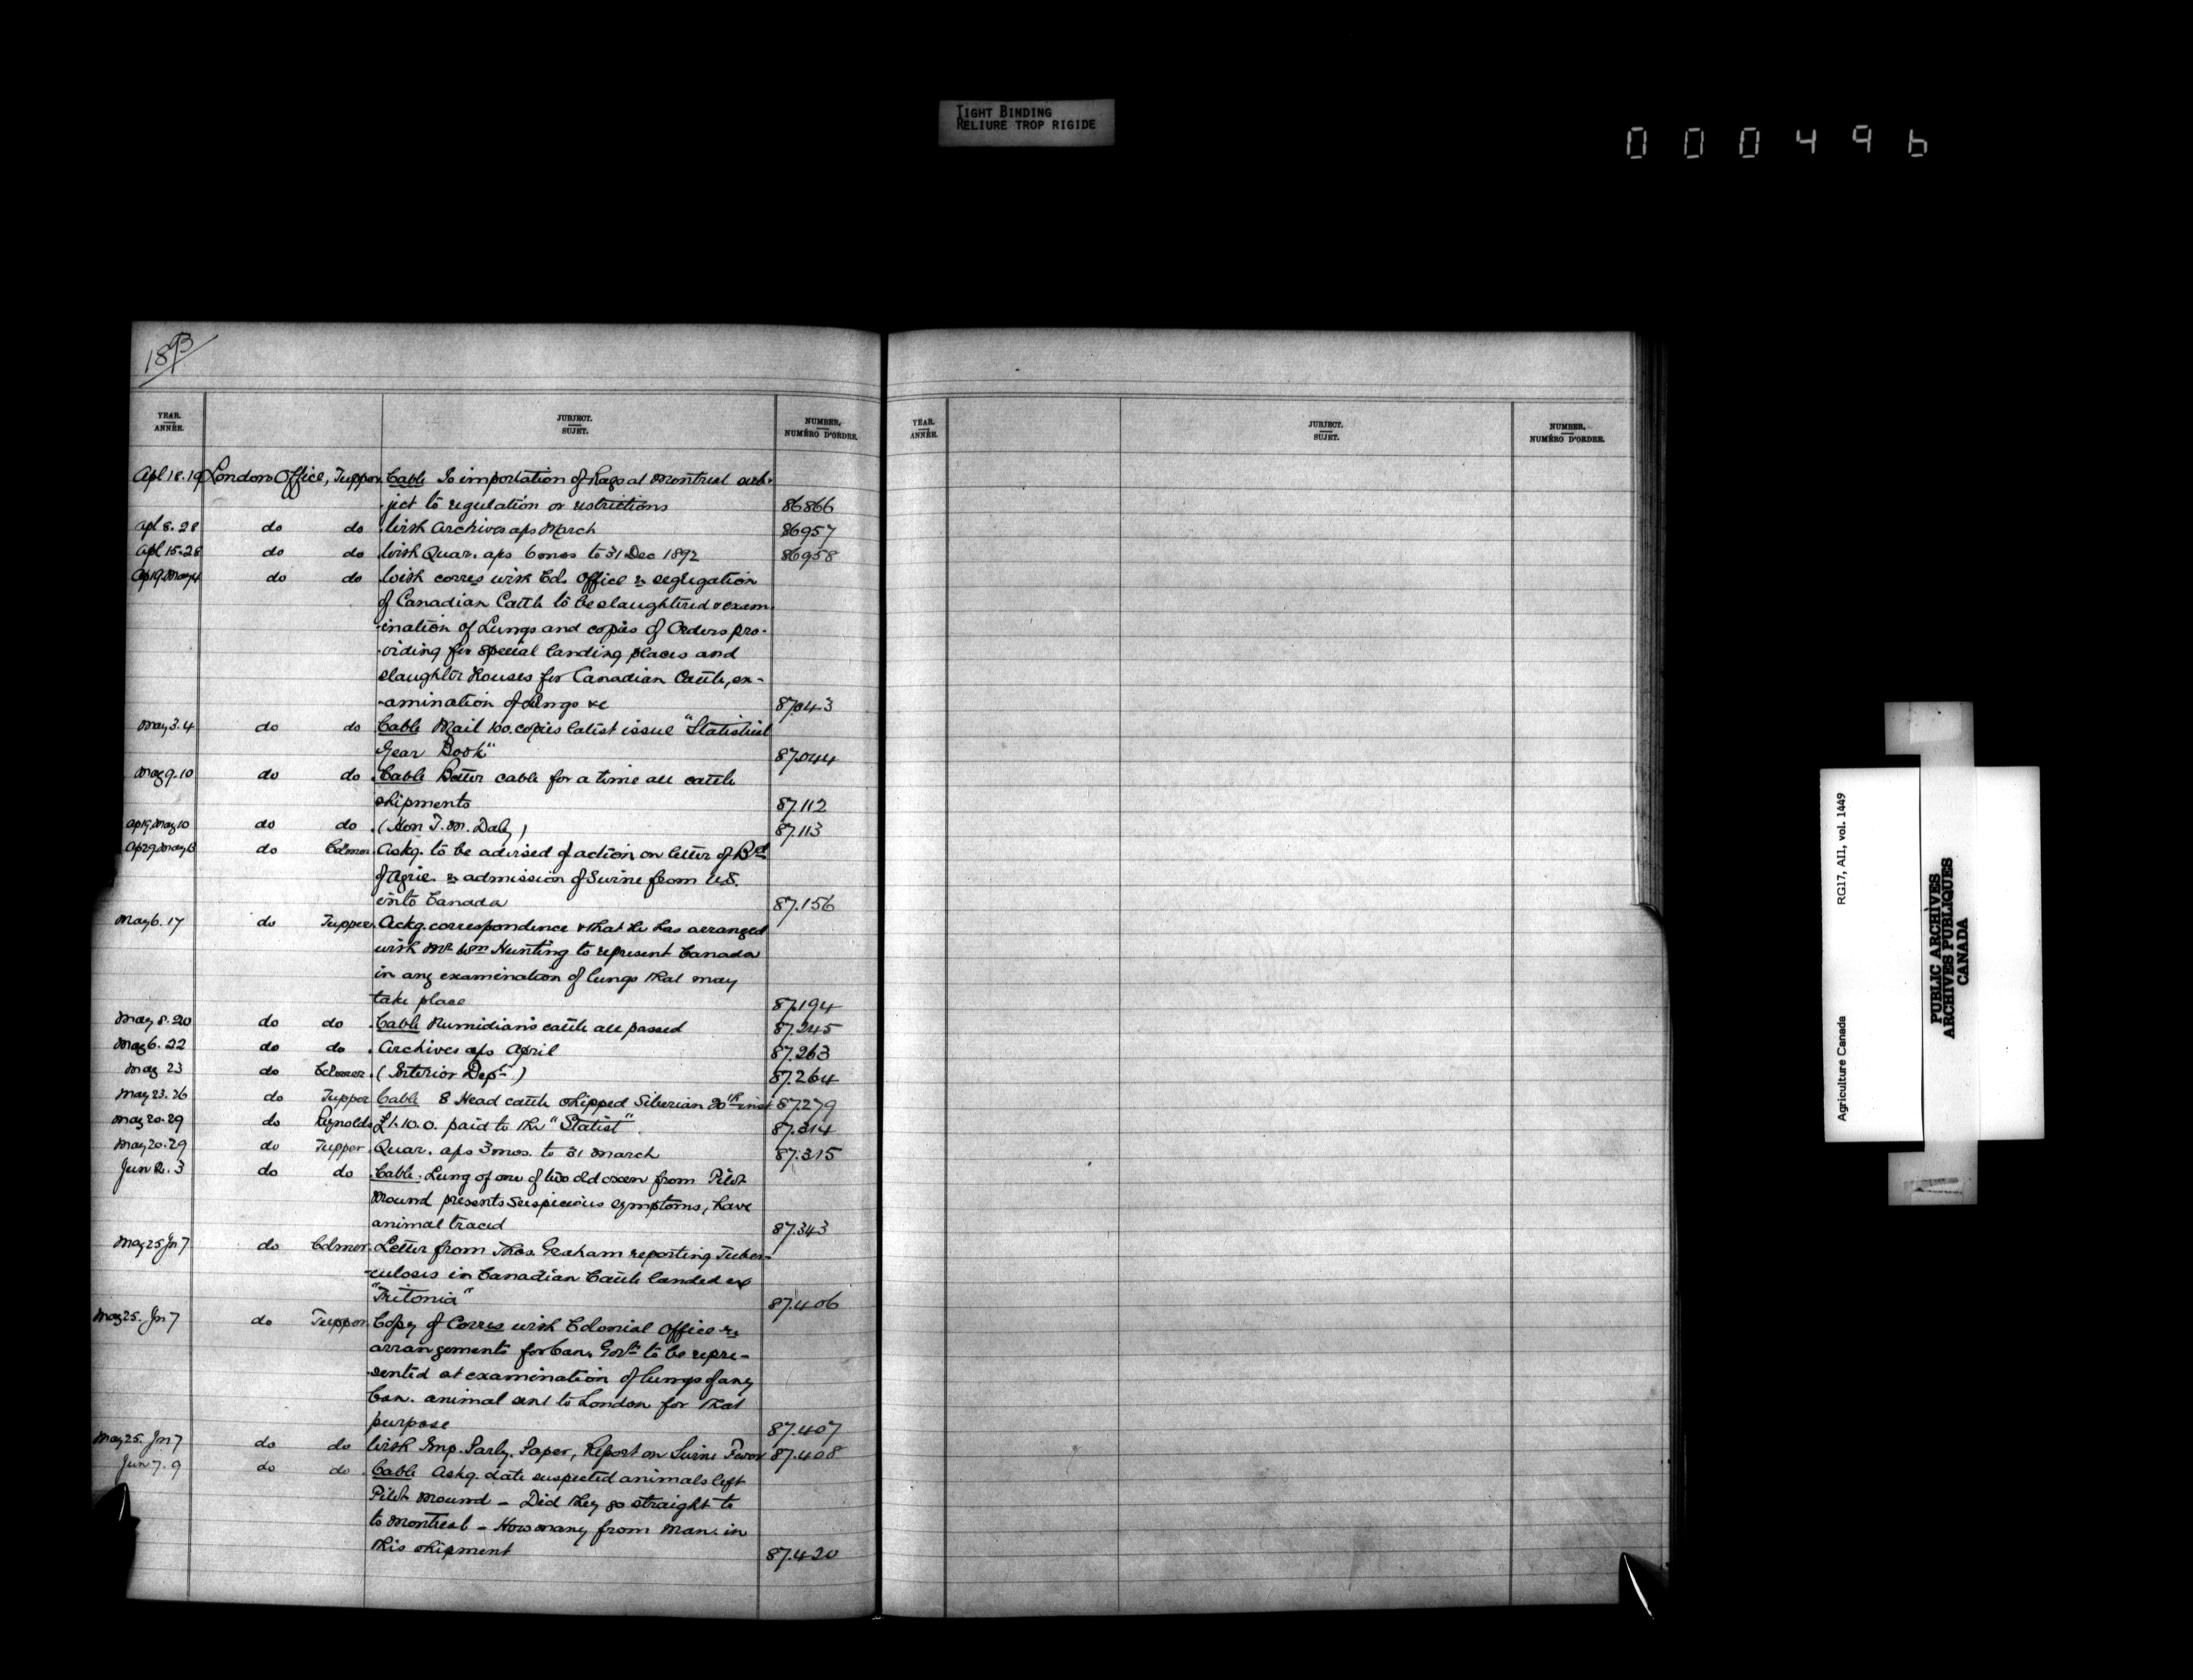 TIGHT BINDING
RELIURE TROP RIGIDE
000496
1893
YEAR.
ANNÉE.
JUBJECT.
SUJET.
NUMBER,
NUMÉRO D'ORDRE.
Apl 18.19 London Office, Tupper Cable Is importation of Rags at Montreal sub-
ject to regulation or restrictions 86866
Apl 8.28 do do With Archives a/cs March 86957
Apl 15.28 do do With Quar. a/cs 6 mos to 31 Dec 1892 86958
Ap 19 May 4 do do With corres with Col. Office re segregation
of Canadian Cattle to be slaughtered & exam
ination of Lungs and copies of Orders pro-
viding for special landing places and
slaughter Houses for Canadian Cattle, ex-
-amination of Lungs &c 87.043
May 3.4 do do Cable Mail 100 copies latest issue "Statistical
Year Book" 87.044
May 9.10 do do Cable Better cable for a time all cattle
shipments 87.112
Ap 19 May 10 do do (Hon T. M. Daly) 87.113
Ap 29 May 13 do Colmer Askg. to be advised of action on letter of Bd
of Agric. re admission of Swine from U.S.
into Canada 87.156
May 6.17 do Tupper Ackg. correspondence & that he has arranged
with Mr Wm Hunting to represent Canada
in any examination of lungs that may
take place 87.194
May 8.20 do do Cable Numidian's cattle all passed 87.245
May 6.22 do do Archives a/cs April 87.263
May 23 do Colmer (Interior Dept) 87.264
May 23.26 do Tupper Cable 8 Head cattle shipped Siberian 20th inst 87.279
May 20.29 do Reynolds £1.10.0. paid to the "Statist" 87.314
May 20.29 do Tupper Quar. a/cs 3 mos. to 31 March 87.315
Jun 2.3 do do Cable. Lung of one of two old oxen from Pilot
Mound presents suspicious symptoms, have
animal traced 87.343
May 25 Jn 7 do Colmer Letter from Thos. Graham reporting Tuber-
-culosis in Canadian Cattle landed ex
"Tritonia" 87.406
May 25. Jn 7 do Tupper Copy of Corres with Colonial Office re
arrangements for Can. Govt. to be repre-
sented at examination of lungs of any
Can. animal sent to London for that
purpose 87.407
May 25. Jn 7 do do With Imp. Parly. Paper, Report on Swine Fever 87.408
Jun 7.9 do do Cable Askg. date suspected animals left
Pilot Mound - Did they go straight to
to Montreal - How many from Man. in
this shipment 87.420
YEAR.
ANNÉE.
JUBJECT.
SUJET.
NUMBER,
NUMÉRO D'ORDRE.
Agriculture Canada RG17, AII, vol. 1449
PUBLIC ARCHIVES
ARCHIVES PUBLIQUES
CANADA